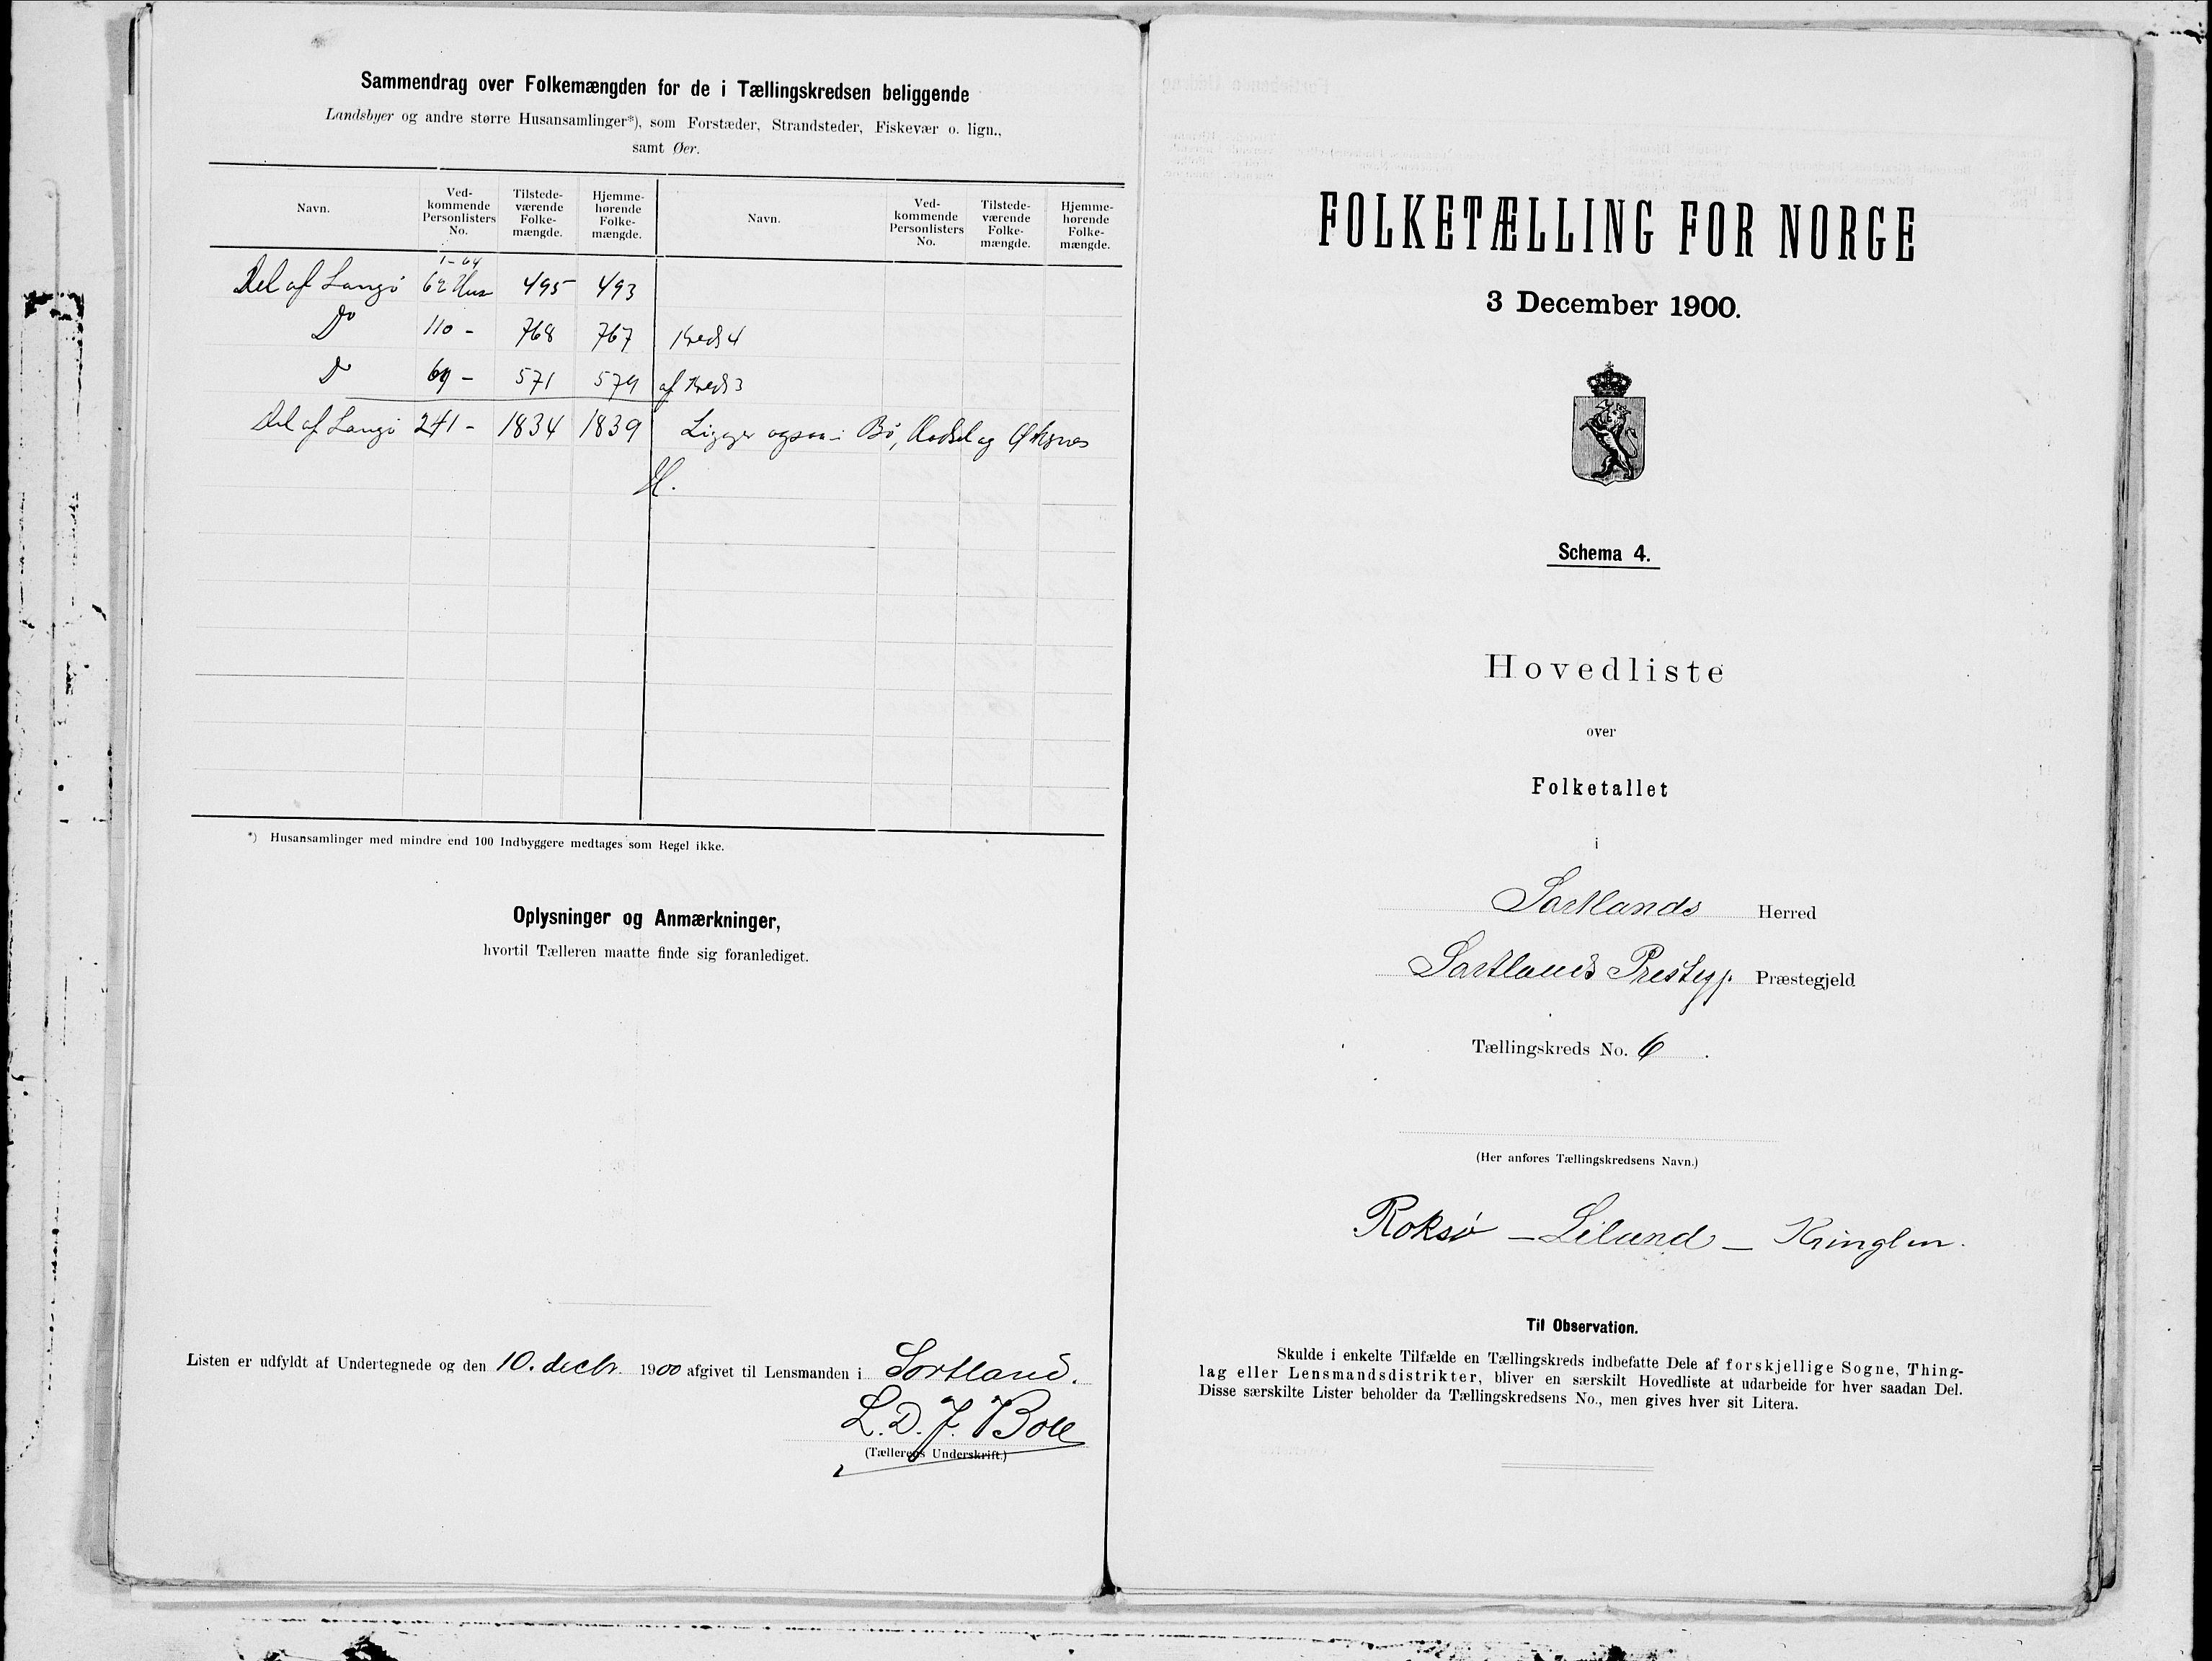 Sammendrag over Folkemængden for de i Tællingskredsen beliggende
Landsbyer og andre større Husansamlinger*), som Forstæder, Strandsteder, Fiskevær o. lign.,
samt Øer.
Navn.
Ved-
kommende
Personlisters
No.
Tilstede-
værende
Folke-
mængde.
Hjemme-
hørende
Folke-
mængde.
Navn.
Ved-
kommende
Personlisters
No.
Tilstede-
værende
Folke-
mængde.
Hjemme-
hørende
Folke-
mængde.
1-64
Del af Langø 62 Hus 495 493
Do 110 - 768 767 Kreds 4
Do 69 - 571 579 af Kreds 3
Del af Langø 241 - 1834 1839 Ligger ogsaa i Bø, Hadsel og Øksnes
H.
*) Husansamlinger med mindre end 100 Indbyggere medtages som Regel ikke.
Oplysninger og Anmærkninger,
hvortil Tælleren maatte finde sig foranlediget.
Listen er udfyldt af Undertegnede og den 10. decbr. 1900 afgivet til Lensmanden i Sortland.
L. D. J. Boll
(Tællerens Underskrift.)
FOLKETÆLLING FOR NORGE
3 December 1900.
Schema 4.
Hovedliste
over
Folketallet
i
Sortlands Herred
Sortlands Prestegj. Præstegjeld
Tællingskreds No. 6.
(Her anføres Tællingskredsens Navn.)
Roksø — Liland — Kringlen.
Til Observation.
Skulde i enkelte Tilfælde en Tællingskreds indbefatte Dele af forskjellige Sogne, Thing-
lag eller Lensmandsdistrikter, bliver en særskilt Hovedliste at udarbeide for hver saadan Del.
Disse særskilte Lister beholder da Tællingskredsens No., men gives hver sit Litera.